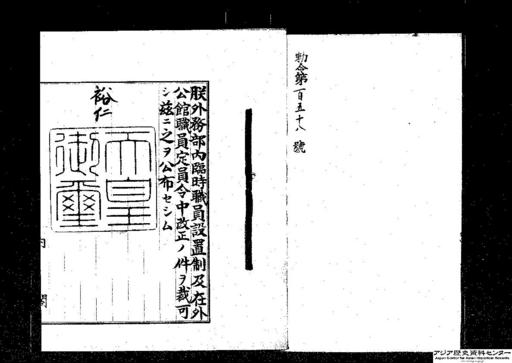 勅令第百五十八號
朕外務部內臨時職員設置制及在外
公館職員定員令中改正ノ件ヲ裁可
シ茲ニ之ヲ公布セシム
裕仁
天皇
御璽
内
閣
アジア歴史資料センター
Japan Center for Asian Historical Records